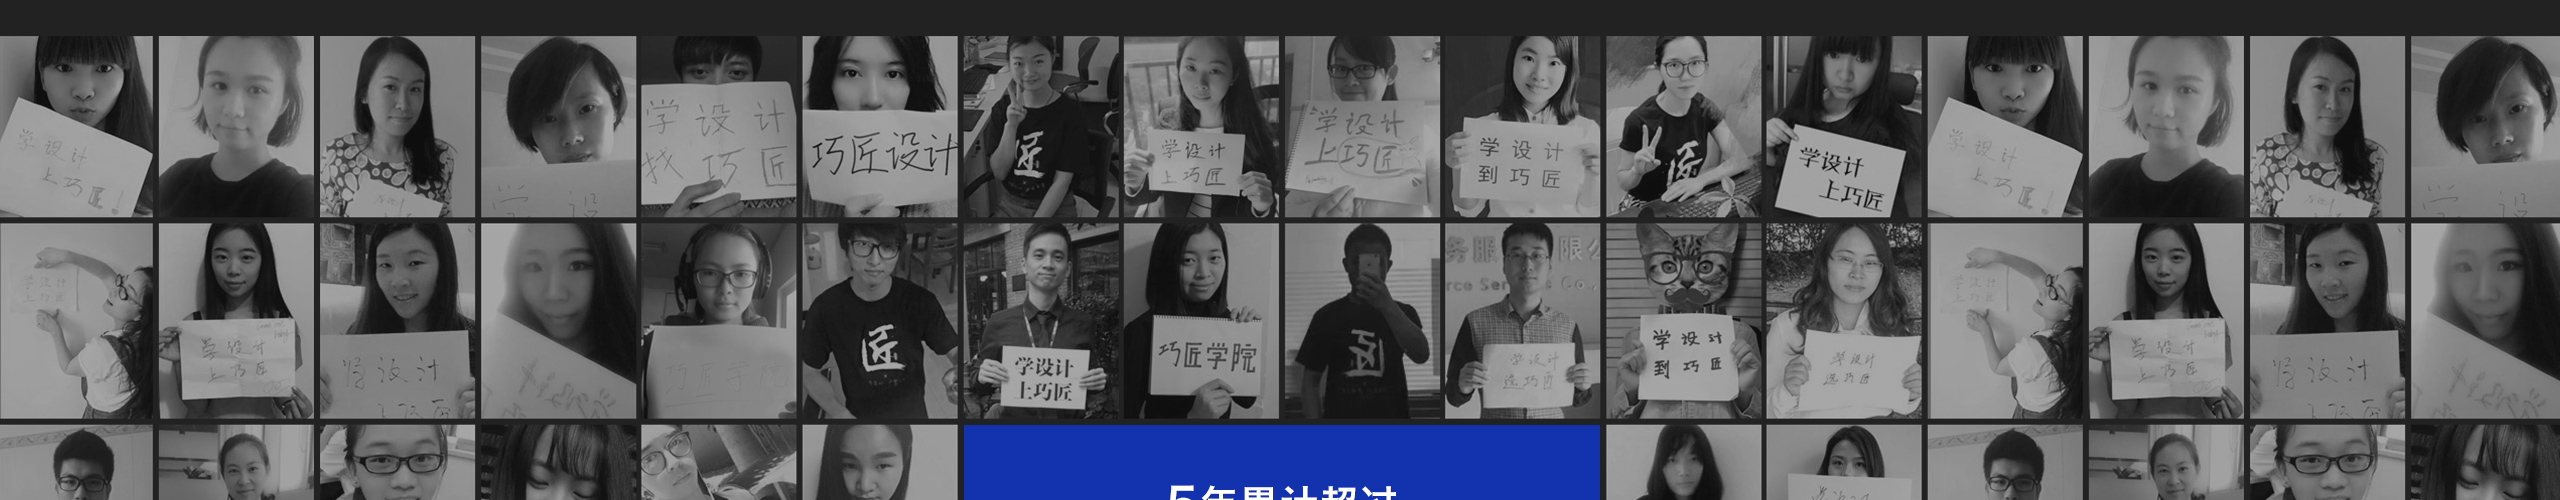 学设计
上巧匠!
学设
学设计
找巧匠
巧匠设计
匠
学设计
上巧匠
学设计
上巧匠
学设计
到巧匠
匠
学设计
上巧匠
学设计
上巧匠!
学设
学设计
上巧匠
学设计
上巧匠
学设计
上巧匠
巧匠学院
匠
学设计
上巧匠
巧匠学院
匠
务服
限公
rce Ser
Co.,
学设计
选巧匠
学设计
到巧匠
学设计
选巧匠
学设计
上巧匠
学设计
上巧匠
学设计
上巧匠
5年累计超过